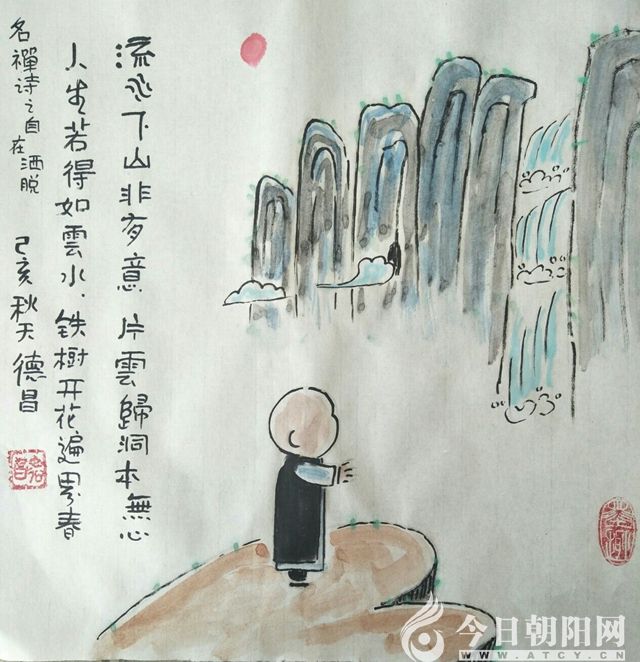 流水下山非有意 片雲歸洞本無心
人生若得如雲水.铁樹开花遍界春
名禪诗之自在洒脱 己亥秋天 德昌
今日朝阳网
WWW.ATCY.CN